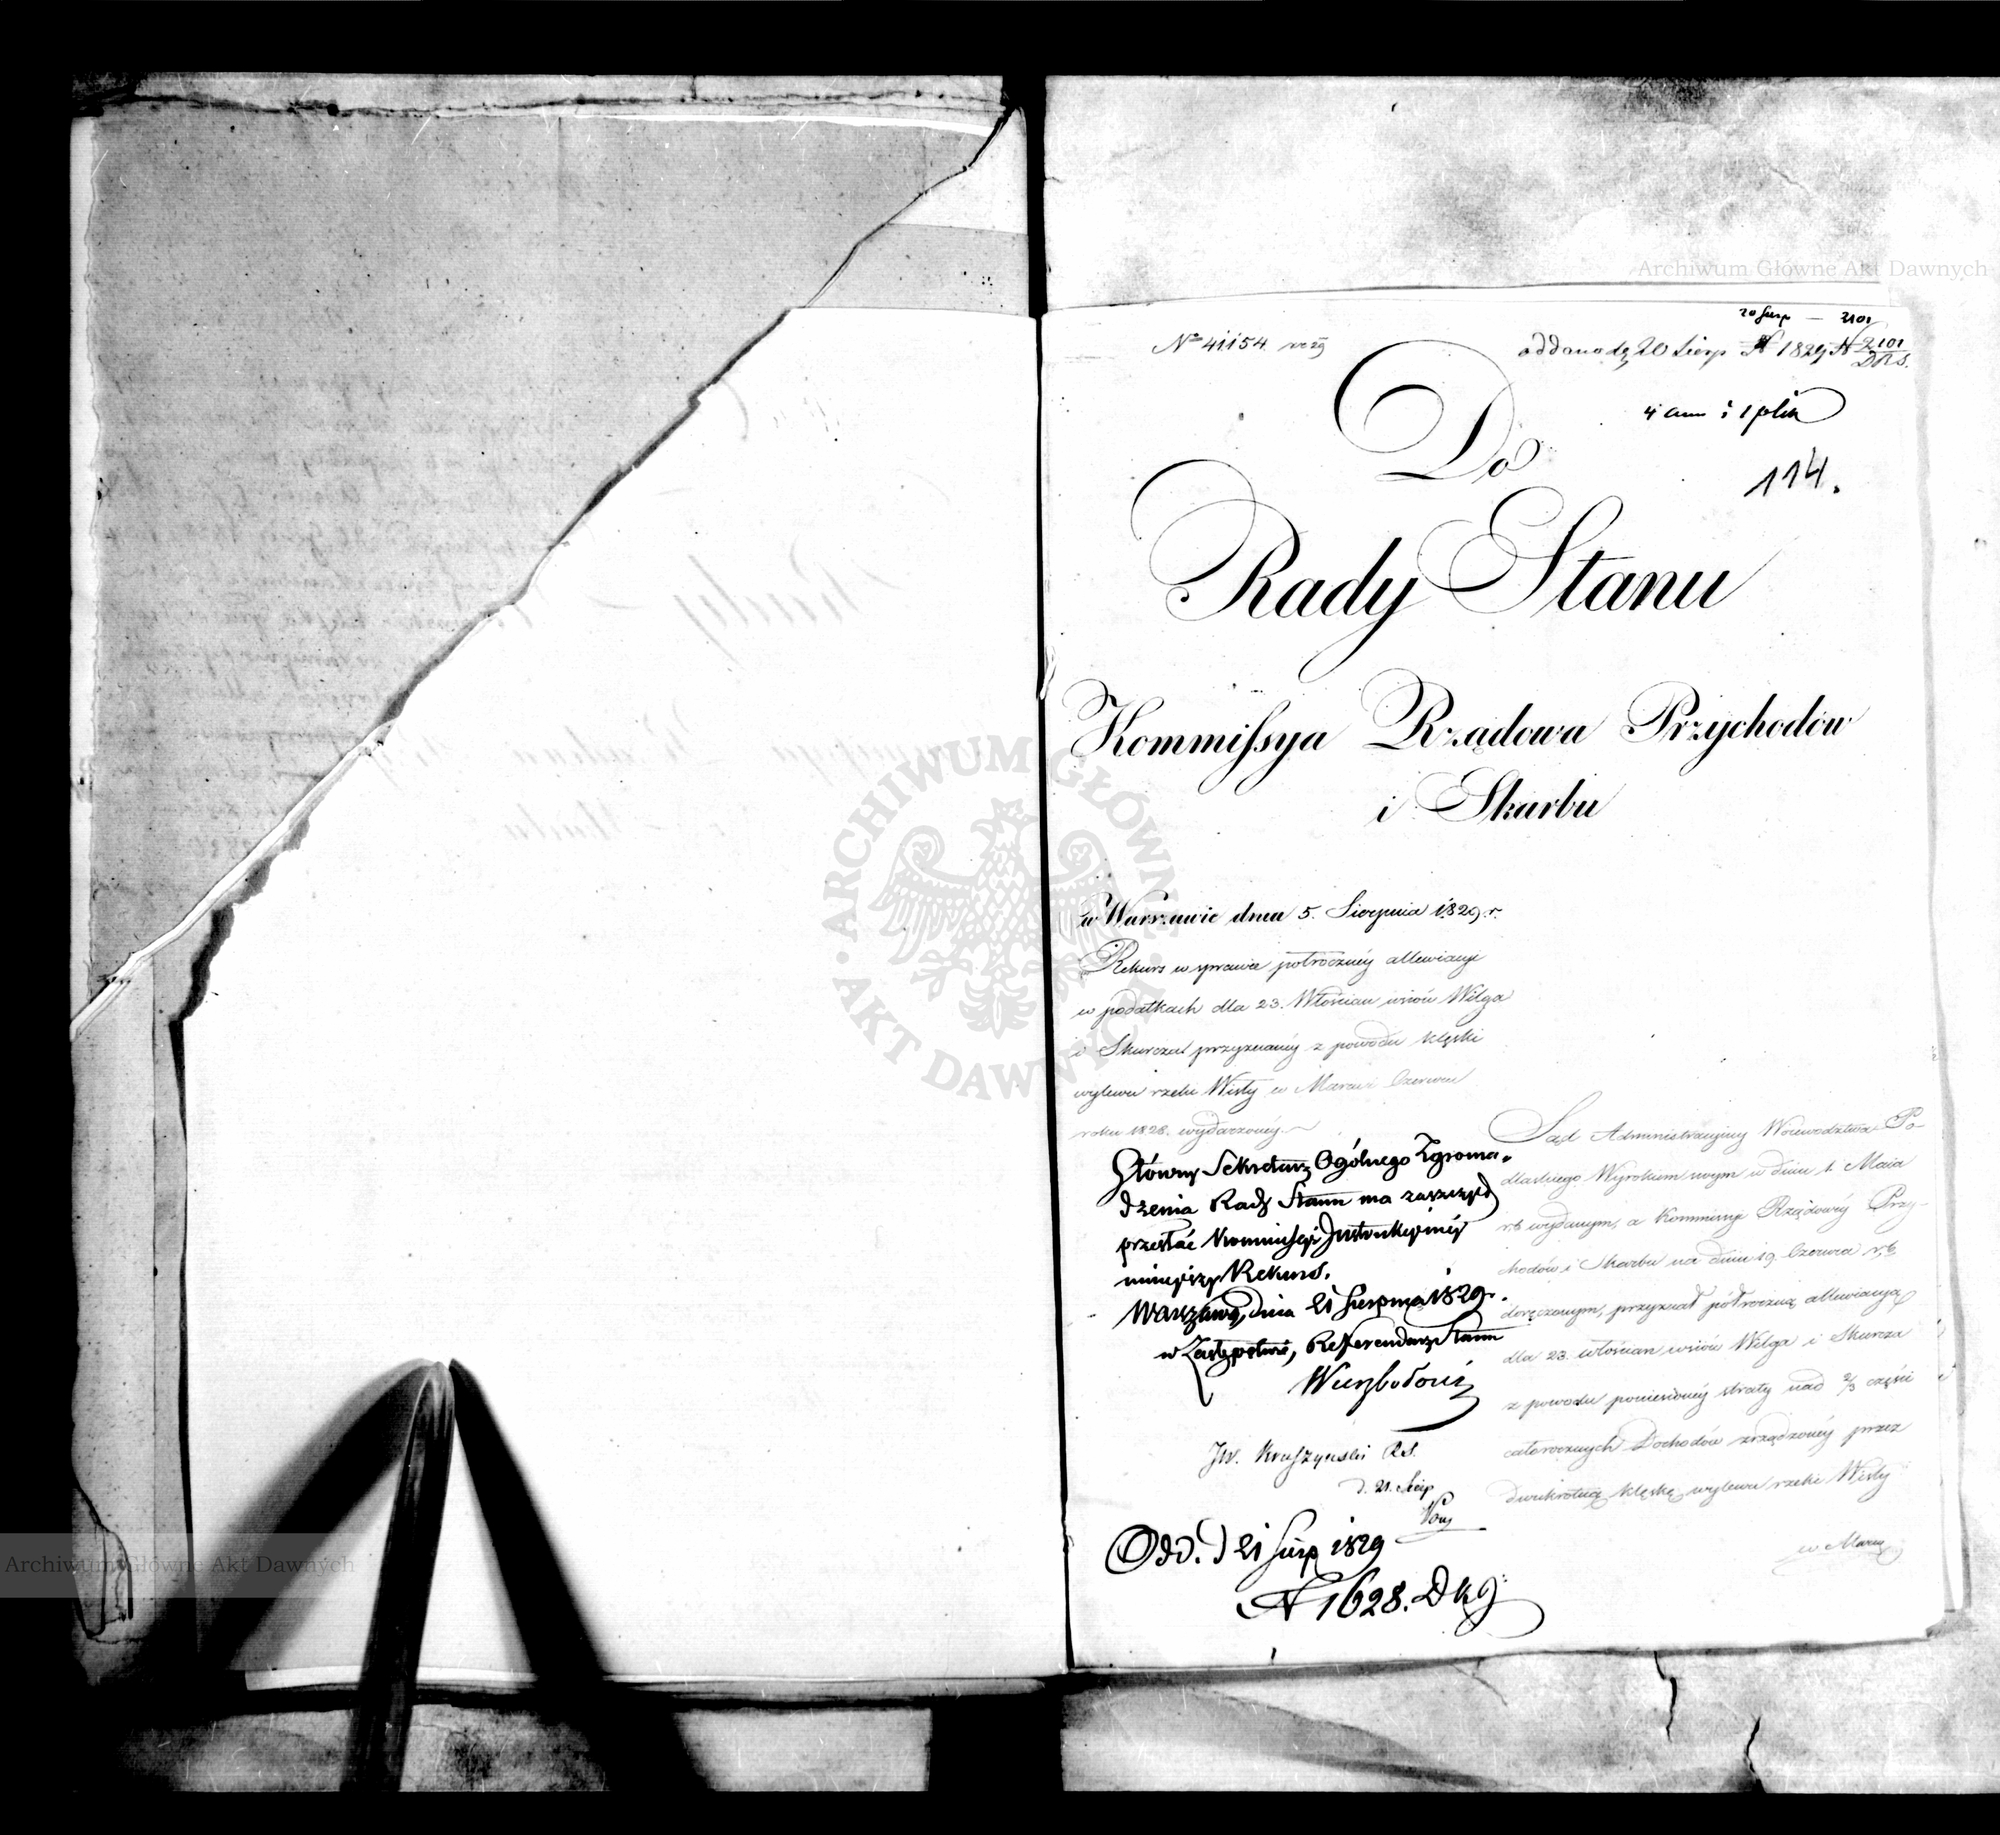 Archiwum Główne Akt Dawnych
20 Sierp — 2101
No 41154
oddano d. 20 Sierp 1829 N 2101
DRS.
4 ann i 1 plik
114.
Do
Rady Stanu
Kommissya Rządowa Przychodów
i Skarbu
w Warszawie dnia 5. Sierpnia 1829 r.
Rekurs w sprawie półroczney allewiacyi
w podatkach dla 23. Włościan wsiów Wilga
i Skurcza przyznaney z powodu klęski
wylewu rzeki Wisły w Marcu i Czerwcu
roku 1828. wydarzoney.
Główny Sekretarz Ogólnego Zgroma-
dzenia Rady Stanu ma zaszczyd
przesłać Kommissyi Instrukcyiney
ninieyszy Rekurs.
Warszawa, dnia 21 Sierpnia 1829.
w Zastępstwie, Referendarz Stanu
Wierzbołowicz
JW. Kruszyński R.S.
d. 21. Sierp
Odd. d 21 Sierp 1829
N 1628. DKJ
Sąd Administracyjny Województwa Po-
dlaskiego Wyrokiem swym w dniu 1. Maia
r.b. wydanym, a Kommissyi Rządowey Przy-
chodów i Skarbu na dniu 19. Czerwca r.b.
doręczonym, przyznał półroczną allewiacyą
dla 23. włościan wsiów Wilga i Skurcza
z powodu poniesioney straty nad 2/3 części
całorocznych Dochodów zrządzoney przez
dwukrotną klęskę wylewu rzeki Wisły
w Marcu
ARCHIWUM GŁÓWNE AKT DAWNYCH
Archiwum Główne Akt Dawnych